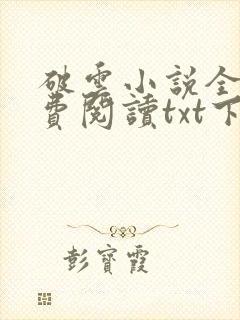 破雲小說全
費閱讀txt下
彭寶霞